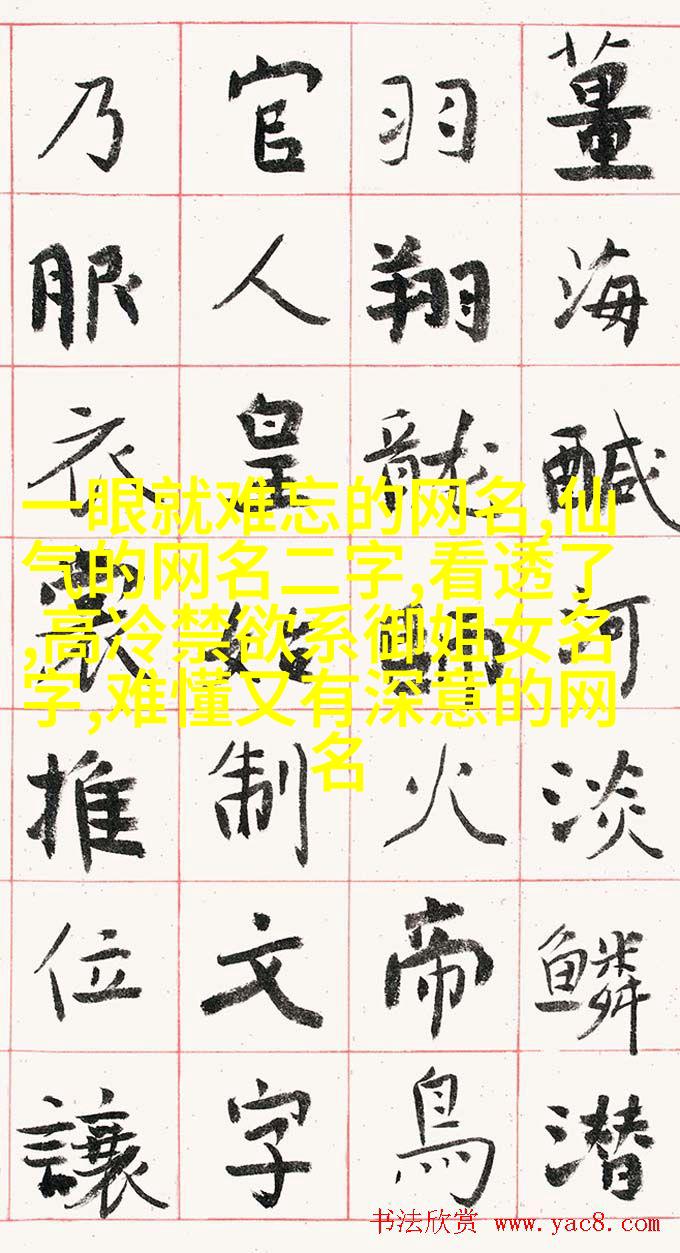 薑海醎河淡鱗潜
羽翔龍師火帝鳥
官人皇始制文字
乃服衣裳推位讓
一眼就难忘的网名,仙
气的网名二字,看透了
,高冷禁欲系御姐女名
字,难懂又有深意的网
名
书法欣赏 www.yac8.com